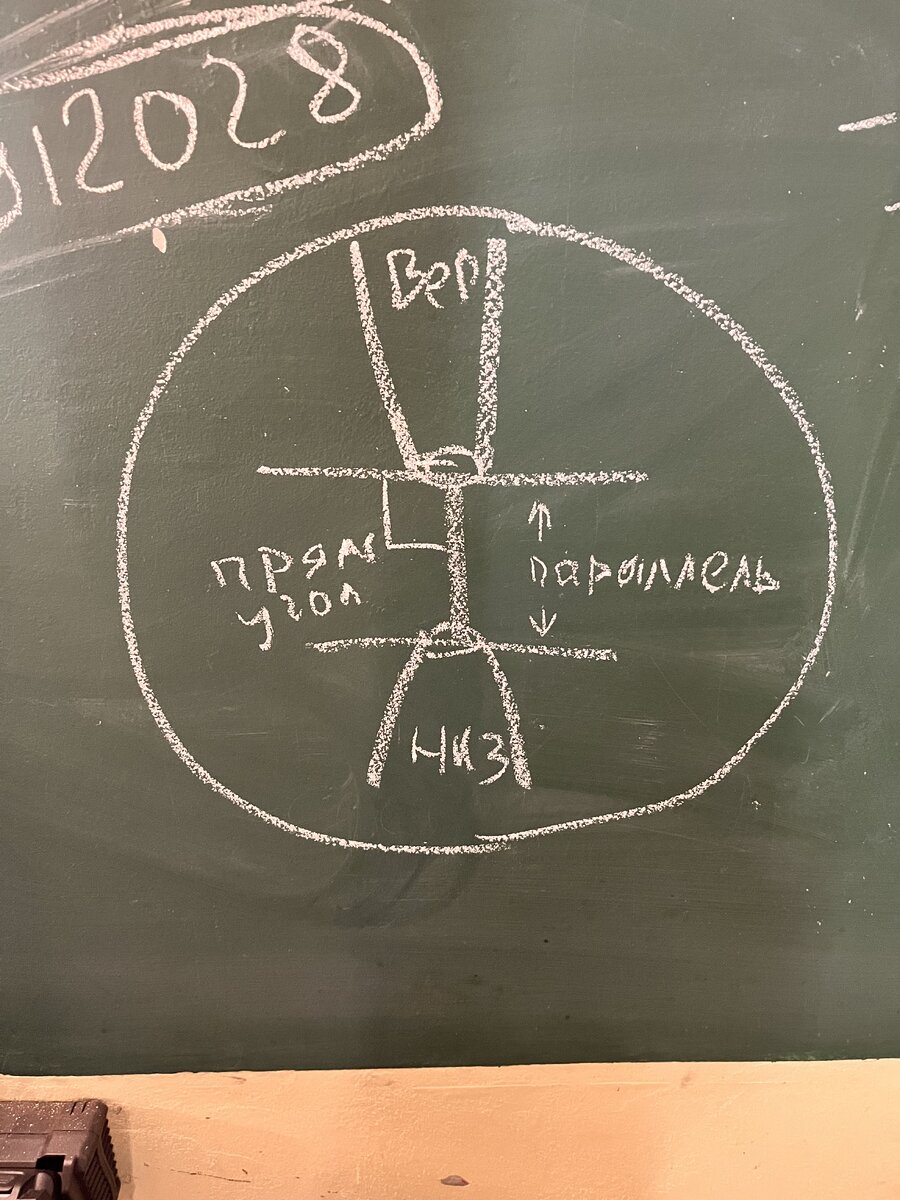 012028
Вер
прям
угол
пароллель
низ